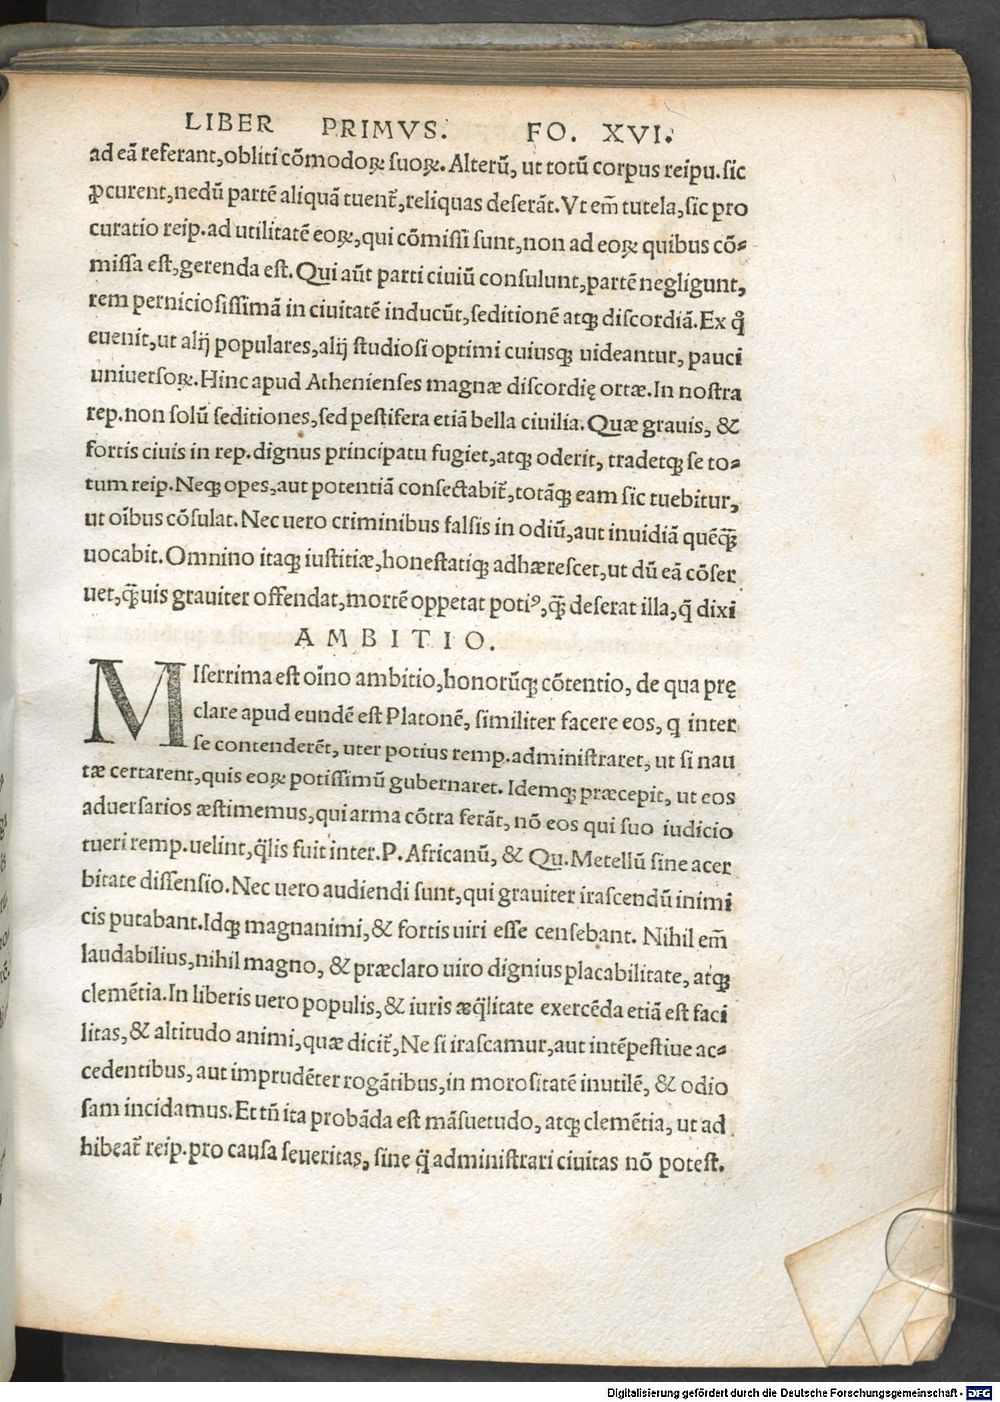 LIBER PRIMVS. FO. XVI.
ad eā referant,obliti cōmodoꝝ suoꝝ. Alterū, ut totū corpus reipu. sic
ꝓcurent,nedū partē aliquā tuent᷑,reliquas deserāt. Vt em̄ tutela,sic pro
curatio reip. ad utilitatē eoꝝ,qui cōmissi sunt,non ad eoꝝ quibus cō⸗
missa est,gerenda est. Qui aūt parti ciuiū consulunt,partē negligunt,
rem perniciosissimā in ciuitatē inducūt,seditionē atqꝫ discordiā. Ex qͦ
euenit,ut alij populares,alij studiosi optimi cuiusqꝫ uideantur, pauci
uniuersoꝝ. Hinc apud Athenienses magnæ discordię ortæ. In nostra
rep. non solū seditiones,sed pestifera etiā bella ciuilia. Quæ grauis, &
fortis ciuis in rep. dignus principatu fugiet,atqꝫ oderit, tradetqꝫ se to⸗
tum reip. Neqꝫ opes,aut potentiā consectabit᷑,totāqꝫ eam sic tuebitur,
ut oībus cōsulat. Nec uero criminibus falsis in odiū,aut inuidiā quēqꝫ̄
uocabit. Omnino itaqꝫ iustitiæ,honestatiqꝫ adhærescet,ut dū eā cōser
uet,qꝫ̄uis grauiter offendat,mortē oppetat potiꝰ,qꝫ̄ deserat illa,q̄ dixi
AMBITIO.
MIserrima est oīno ambitio,honorūqꝫ cōtentio, de qua prę
clare apud eundē est Platonē, similiter facere eos, q inter
se contenderēt, uter potius remp. administraret, ut si nau
tæ certarent,quis eoꝝ potissimū gubernaret. Idemqꝫ præcepit, ut eos
aduersarios æstimemus,qui arma cōtra ferāt, nō eos qui suo iudicio
tueri remp. uelint,q̄lis fuit inter. P. Africanū, & Qu. Metellū sine acer
bitate dissensio. Nec uero audiendi sunt,qui grauiter irascendū inimi
cis putabant. Idqꝫ magnanimi,& fortis uiri esse censebant. Nihil em̄
laudabilius,nihil magno, & præclaro uiro dignius placabilitate, atqꝫ
clemētia. In liberis uero populis,& iuris æq̄litate exercēda etiā est faci
litas,& altitudo animi,quæ dicit᷑,Ne si irascamur,aut intēpestiue ac⸗
cedentibus, aut imprudēter rogātibus,in morositatē inutilē, & odio
sam incidamus. Et tn̄ ita probāda est māsuetudo, atqꝫ clemētia, ut ad
hibeat᷑ reip. pro causa seueritas, sine q̄ administrari ciuitas nō potest.
Digitalisierung gefördert durch die Deutsche Forschungsgemeinschaft - DFG